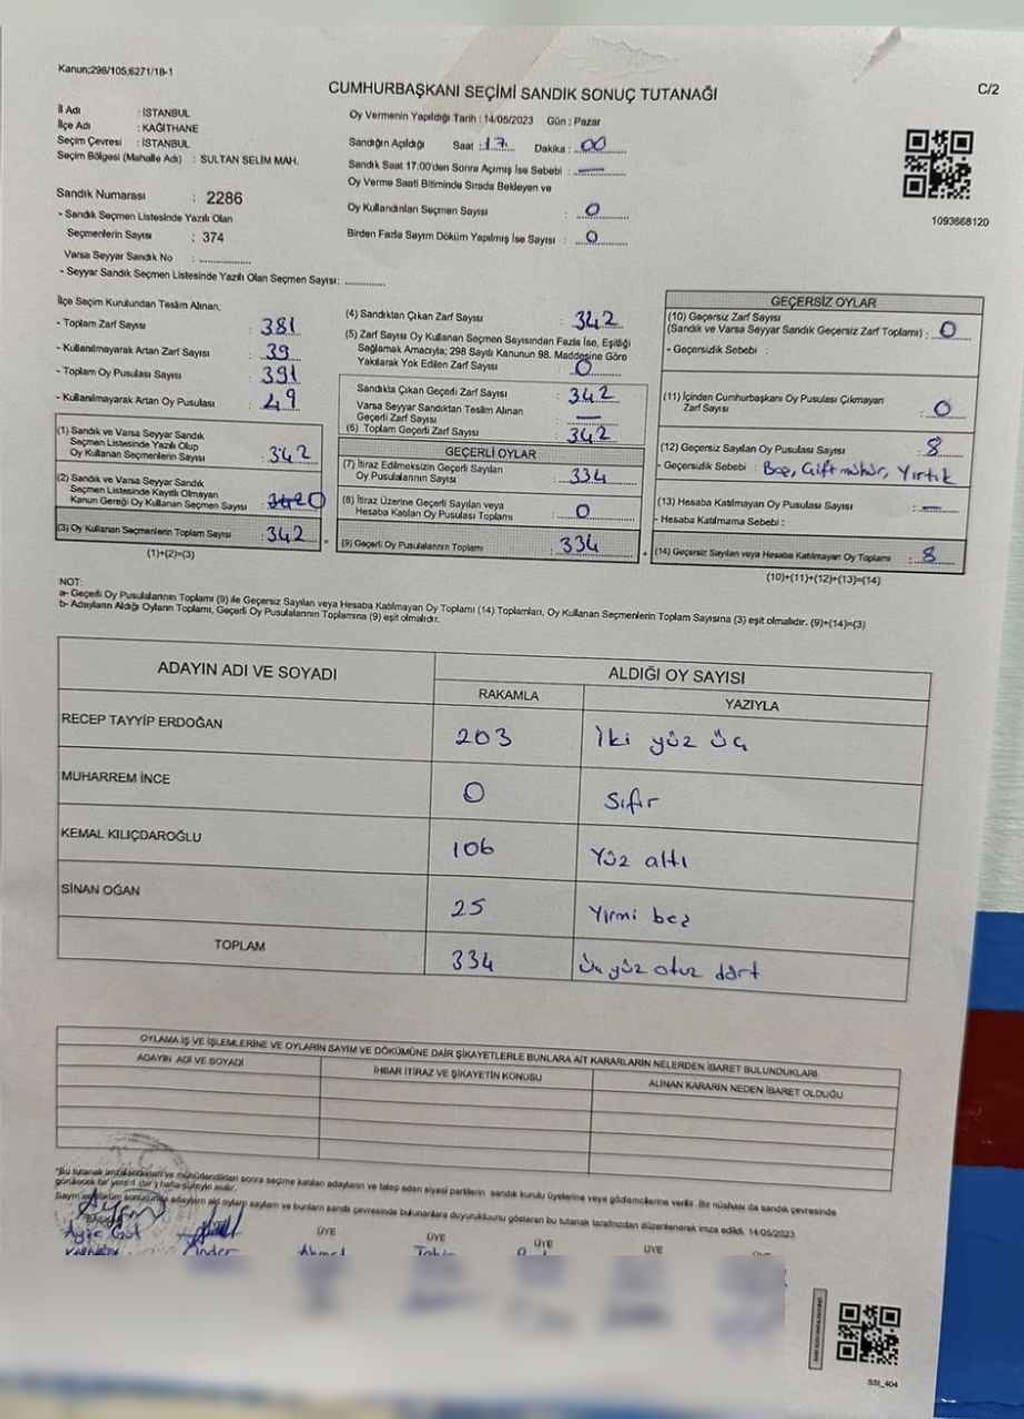 Kanun;298/105,6271/18-1
C/2
CUMHURBAŞKANI SEÇİMİ SANDIK SONUÇ TUTANAĞI
İl Adı : İSTANBUL
İlçe Adı : KAĞITHANE
Seçim Çevresi : İSTANBUL
Seçim Bölgesi (Mahalle Adı) : SULTAN SELİM MAH.
Sandık Numarası : 2286
- Sandık Seçmen Listesinde Yazılı Olan
Seçmenlerin Sayısı : 374
Varsa Seyyar Sandık No :
- Seyyar Sandık Seçmen Listesinde Yazılı Olan Seçmen Sayısı:
Oy Vermenin Yapıldığı Tarih : 14/05/2023 Gün : Pazar
Sandığın Açıldığı Saat : 17 Dakika : 00
Sandık Saat 17:00'den Sonra Açımış İse Sebebi : —
Oy Verme Saati Bitiminde Sırada Bekleyen ve
Oy Kullandırılan Seçmen Sayısı : 0
Birden Fazla Sayım Döküm Yapılmış İse Sayısı : 0
1093668120
İlçe Seçim Kurulundan Teslim Alınan;
- Toplam Zarf Sayısı : 381
- Kullanılmayarak Artan Zarf Sayısı : 39
- Toplam Oy Pusulası Sayısı : 391
- Kullanılmayarak Artan Oy Pusulası : 49
(1) Sandık ve Varsa Seyyar Sandık
Seçmen Listesinde Yazılı Olup
Oy Kullanan Seçmenlerin Sayısı : 342
(2) Sandık ve Varsa Seyyar Sandık
Seçmen Listesinde Kayıtlı Olmayan
Kanun Gereği Oy Kullanan Seçmen Sayısı : 0
(3) Oy Kullanan Seçmenlerin Toplam Sayısı : 342
(1)+(2)=(3)
(4) Sandıktan Çıkan Zarf Sayısı : 342
(5) Zarf Sayısı Oy Kullanan Seçmen Sayısından Fazla İse, Eşitliği
Sağlamak Amacıyla; 298 Sayılı Kanunun 98. Maddesine Göre
Yakılarak Yok Edilen Zarf Sayısı : 0
Sandıkta Çıkan Geçerli Zarf Sayısı : 342
Varsa Seyyar Sandıktan Teslim Alınan
Geçerli Zarf Sayısı : —
(6) Toplam Geçerli Zarf Sayısı : 342
GEÇERLİ OYLAR
(7) İtiraz Edilmeksizin Geçerli Sayılan
Oy Pusulalarının Sayısı : 334
(8) İtiraz Üzerine Geçerli Sayılan veya
Hesaba Katılan Oy Pusulası Toplamı : 0
(9) Geçerli Oy Pusulalarının Toplamı : 334
GEÇERSİZ OYLAR
(10) Geçersiz Zarf Sayısı
(Sandık ve Varsa Seyyar Sandık Geçersiz Zarf Toplamı) : 0
- Geçersizlik Sebebi :
(11) İçinden Cumhurbaşkanı Oy Pusulası Çıkmayan
Zarf Sayısı : 0
(12) Geçersiz Sayılan Oy Pusulası Sayısı : 8
- Geçersizlik Sebebi : Boş, Çift mühür, Yırtık
(13) Hesaba Katılmayan Oy Pusulası Sayısı : —
- Hesaba Katılmama Sebebi :
(14) Geçersiz Sayılan veya Hesaba Katılmayan Oy Toplamı : 8
(10)+(11)+(12)+(13)=(14)
NOT:
a- Geçerli Oy Pusulalarının Toplamı (9) ile Geçersiz Sayılan veya Hesaba Katılmayan Oy Toplamı (14) Toplamları, Oy Kullanan Seçmenlerin Toplam Sayısına (3) eşit olmalıdır. (9)+(14)=(3)
b- Adayların Aldığı Oyların Toplamı, Geçerli Oy Pusulalarının Toplamına (9) eşit olmalıdır.
ADAYIN ADI VE SOYADI
ALDIĞI OY SAYISI
RAKAMLA YAZIYLA
RECEP TAYYİP ERDOĞAN 203 İki yüz üç
MUHARREM İNCE 0 Sıfır
KEMAL KILIÇDAROĞLU 106 Yüz altı
SİNAN OĞAN 25 Yirmi beş
TOPLAM 334 Üç yüz otuz dört
OYLAMA İŞ VE İŞLEMLERİNE VE OYLARIN SAYIM VE DÖKÜMÜNE DAİR ŞİKAYETLERLE BUNLARA AİT KARARLARIN NELERDEN İBARET BULUNDUKLARI
ADAYIN ADI VE SOYADI
İHBAR İTİRAZ VE ŞİKAYETİN KONUSU
ALINAN KARARIN NEDEN İBARET OLDUĞU
"Bu tutanak imzalandıktan ve mühürlendikten sonra seçime katılan adayların ve talep eden siyasi partilerin sandık kurulu üyelerine veya gözlemcilerine verilir. Bir nüshası da sandık çevresinde
Sayım sonucunda adayların aldığı oyların sayıları ve bunların sandık çevresinde bulunanlara duyurulduğunu gösteren bu tutanak tarafımızdan düzenlenerek imza edildi. 14/05/2023
ÜYE ÜYE ÜYE ÜYE
Ahmet
SSI_404